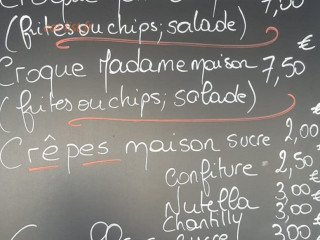 Croque 7,00
(frites ou chips; salade)
€
Croque Madame maison 7,50
(frites ou chips; salade)
€
Crêpes maison sucre 2,00
€
Confiture 2,50
€
Nutella 3,00
€
Chantilly 3,00
sucre 3,00